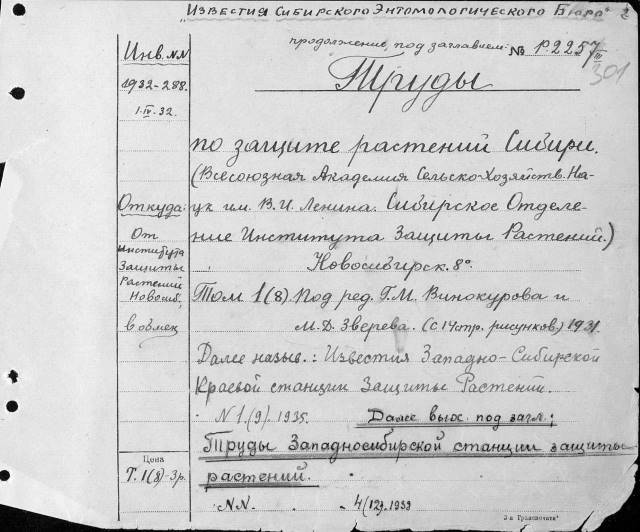 "Известия Сибирского Энтомологического Бюро"
продолжение, под заглавием: № P.2257
III
301
Труды
Инв. NN
1932-288.
1.IV.32.
по защите растений Сибири.
(Всесоюзная Академия Сельско-Хозяйств. На-
ук им. В.И. Ленина. Сибирское Отделе-
ние Института Защиты Растений.)
Новосибирск. 8°.
Откуда:
От
Института
Защиты
Растений
Новосиб.
в обмен
Том 1(8). Под ред. Г.М. Винокурова и
М.Д. Зверева. (с 14 отр. рисунков) 1931.
Далее назыв.: Известия Западно-Сибирской
Краевой станции Защиты Растений.
N 1 (9). 1935. Далее вых. под загл.;
Труды Западносибирской станции защиты
растений.
Цена
Т. 1(8)-3р.
NN.
3-я Гравпечать